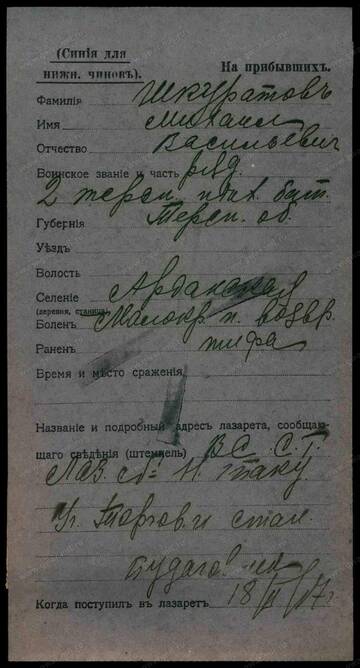 (Синія для
нижн. чиновъ).
На прибывшихъ.
Фамилія Шкуратовъ
Имя Михаил
Отчество Васильевич
Воинское званіе и часть ряд.
2 терск. пласт. бат.
Губернія Терск. об.
Уѣздъ
Волость
Селеніе
(деревня, станица)
Боленъ Малокр. и возвр.
Раненъ тифа
Время и мѣсто сраженія
Названіе и подробный адресъ лазарета, сообщаю-
щаго свѣдѣнія (штемпель) В. С. Г.
Лаз. Баку
Уг. Торгов. и
18/II 17 г.
Когда поступилъ въ лазаретъ